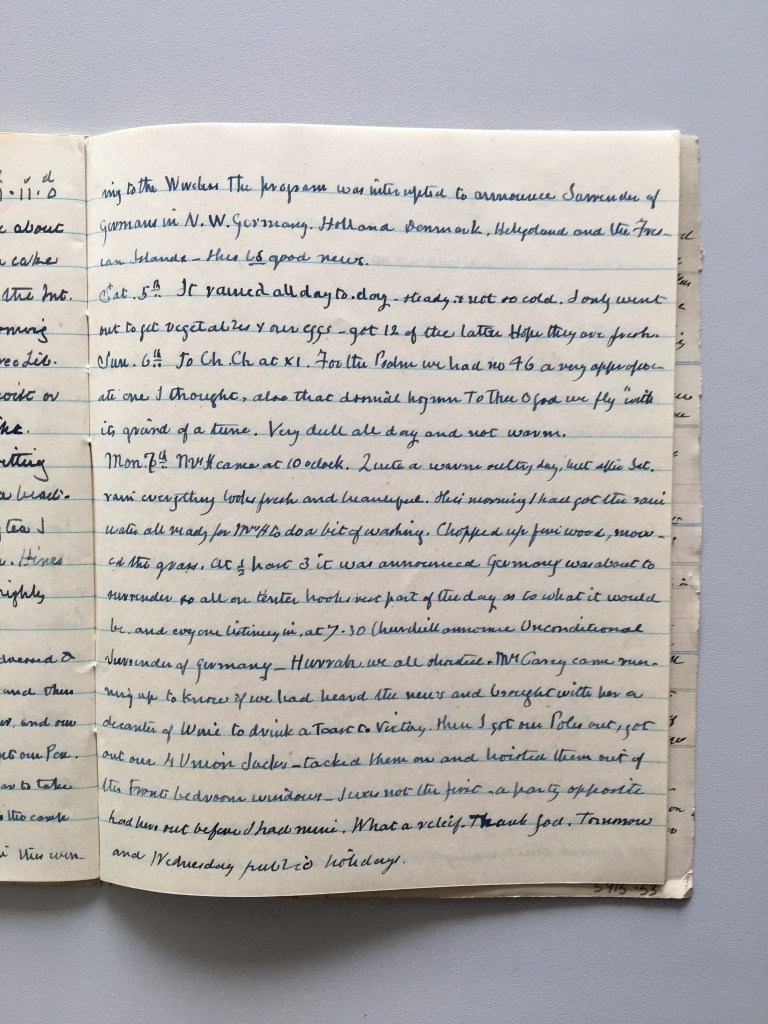 d
1. 11. 0
about
cake
the Int.
wing
Lib.
or
tting
a
tea I
Hines
ighly
and then
and our
to take
the camp
this
ing to the Wireless The program was interupted to announce Surrender of
Germans in N.W. Germany. Holland Denmark, Helgoland and the Fres-
ian Islands - this is good news.
Sat. 5th It rained all day to-day - steady & not so cold. I only went
out to get vegetables & our eggs - got 12 of the latter Hope they are fresh.
Sun. 6th To Ch. Ch at XI. For the Psalm we had no 46 a very appropri-
ate one I thought, also that dismal hymn To thee O God we fly "with
its grind of a tune. Very dull all day and not warm.
Mon. 7th Mrs H came at 10 oclock. Quite a warm sultry day, but after Sat.
rain everything looks fresh and beautiful. This morning I had got the rain
water all ready for Mrs H to do a bit of washing. Chopped up fire wood, mow-
ed the grass. At ½ past 3 it was announced Germany was about to
surrender so all on tenter hooks rest part of the day as to what it would
be. and everyone listening in, at 7.30 Churchill announce Unconditional
Surrender of Germany - Hurrah we all shouted. Mrs Carey came run-
ning up to know if we had heard the news and brought with her a
decanter of Wine to drink a Toast to Victory. Then I got our Poles out, got
out our 4 Union Jacks - tacked them on and hoisted them out of
the Front bedroom windows - I was not the first - a party opposite
had hers out before I had mine. What a relief. Thank God. Tomorrow
and Wednesday public holidays.
5415 '53